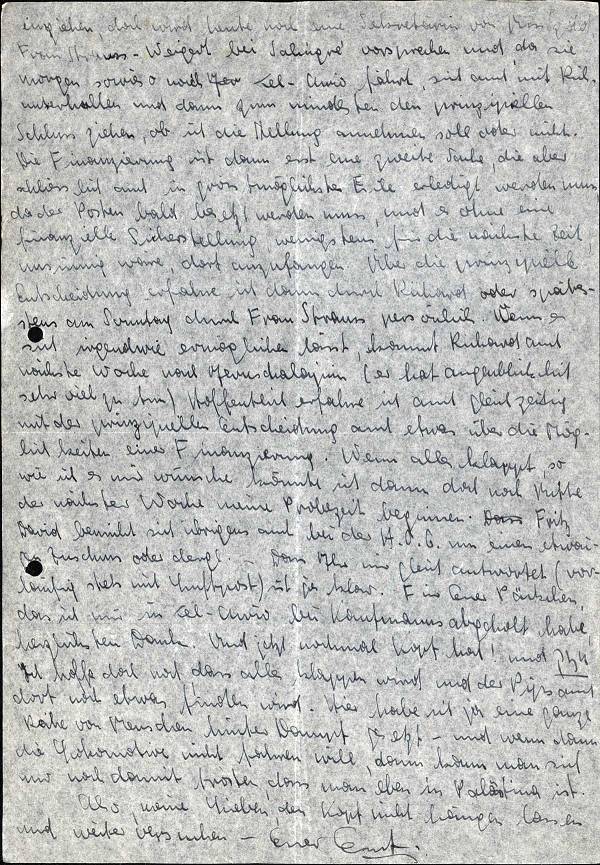 einziehen, doch wird heute noch eine Sekretärin von
Frau Strauss-Weigert bei Salingré vorsprechen und da sie
morgen sowieso nach Tel-Awiw fährt, sich auch mit Rich.
unterhalten und dann zum mindesten den prinzipiellen
Schluss ziehen, ob ich die Stellung annehmen soll oder nicht.
Die Finanzierung ist dann erst eine zweite Sache, die aber
schliesslich auch in grösstmöglichster Eile erledigt werden muss
da der Posten bald besetzt werden muss, und es ohne eine
finanzielle Sicherstellung wenigstens für die nächste Zeit,
unsinnig wäre, dort anzufangen. Über die prinzipielle
Entscheidung erfahre ich dann durch Richard oder späte-
stens am Sonntag durch Frau Strauss persönlich. Wenn es
sich irgendwie ermöglichen lässt, kommt Richard auch
nächste Woche nach Jeruschalajim (er hat augenblicklich
sehr viel zu tun) Hoffentlich erfahre ich auch gleichzeitig
mit der prinzipiellen Entscheidung auch etwas über die Mög-
lichkeiten einer Finanzierung. Wenn alles klappt, so
wie ich es mir wünsche könnte ich dann doch noch Mitte
der nächsten Woche meine Probezeit beginnen. Fritz
David bemüht sich übrigens auch bei der H.O.G. um einen etwai-
gen Zuschuss oder dergl. – Dass Ihr mir gleich antwortet (vor-
läufig stets mit Luftpost) ist ja klar. Für Euer Päckchen,
das ich mir in Tel-Awiw bei Kaufmanns abgeholt habe,
herzlichsten Dank. Und jetzt nochmal Kopf hoch! und
Ich hoffe doch noch dass alles klappen wird und der Pips auch
dort noch etwas finden wird. Hier habe ich ja eine ganze
Reihe von Menschen hinter Dampf gesetzt – und wenn dann
die Lokomotive nicht fahren will, dann kann man sich
nur noch damit trösten, dass man eben in Palästina ist.
Also, meine Lieben, den Kopf nicht hängen lassen
und weiter versuchen – Euer Ernst.